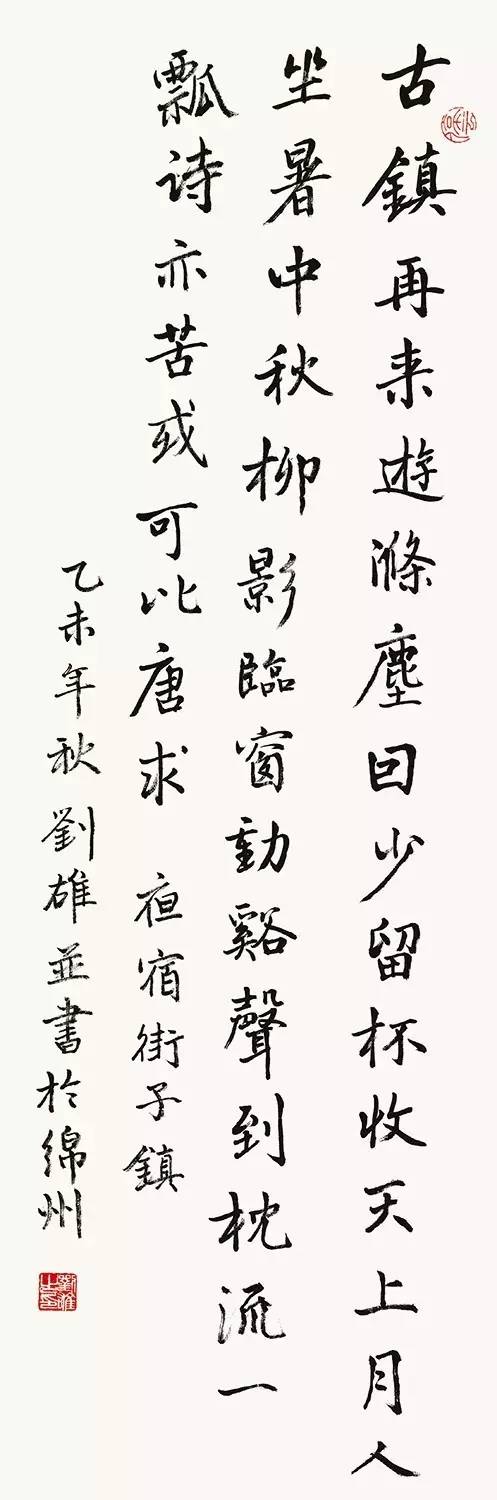 古鎮再来遊滌塵囙少留杯收天上月人
坐暑中秋柳影臨窗動谿聲到枕流一
瓢诗亦苦或可比唐求 夜宿街子鎮
乙未年秋劉雄並書於綿州
劉雄之印